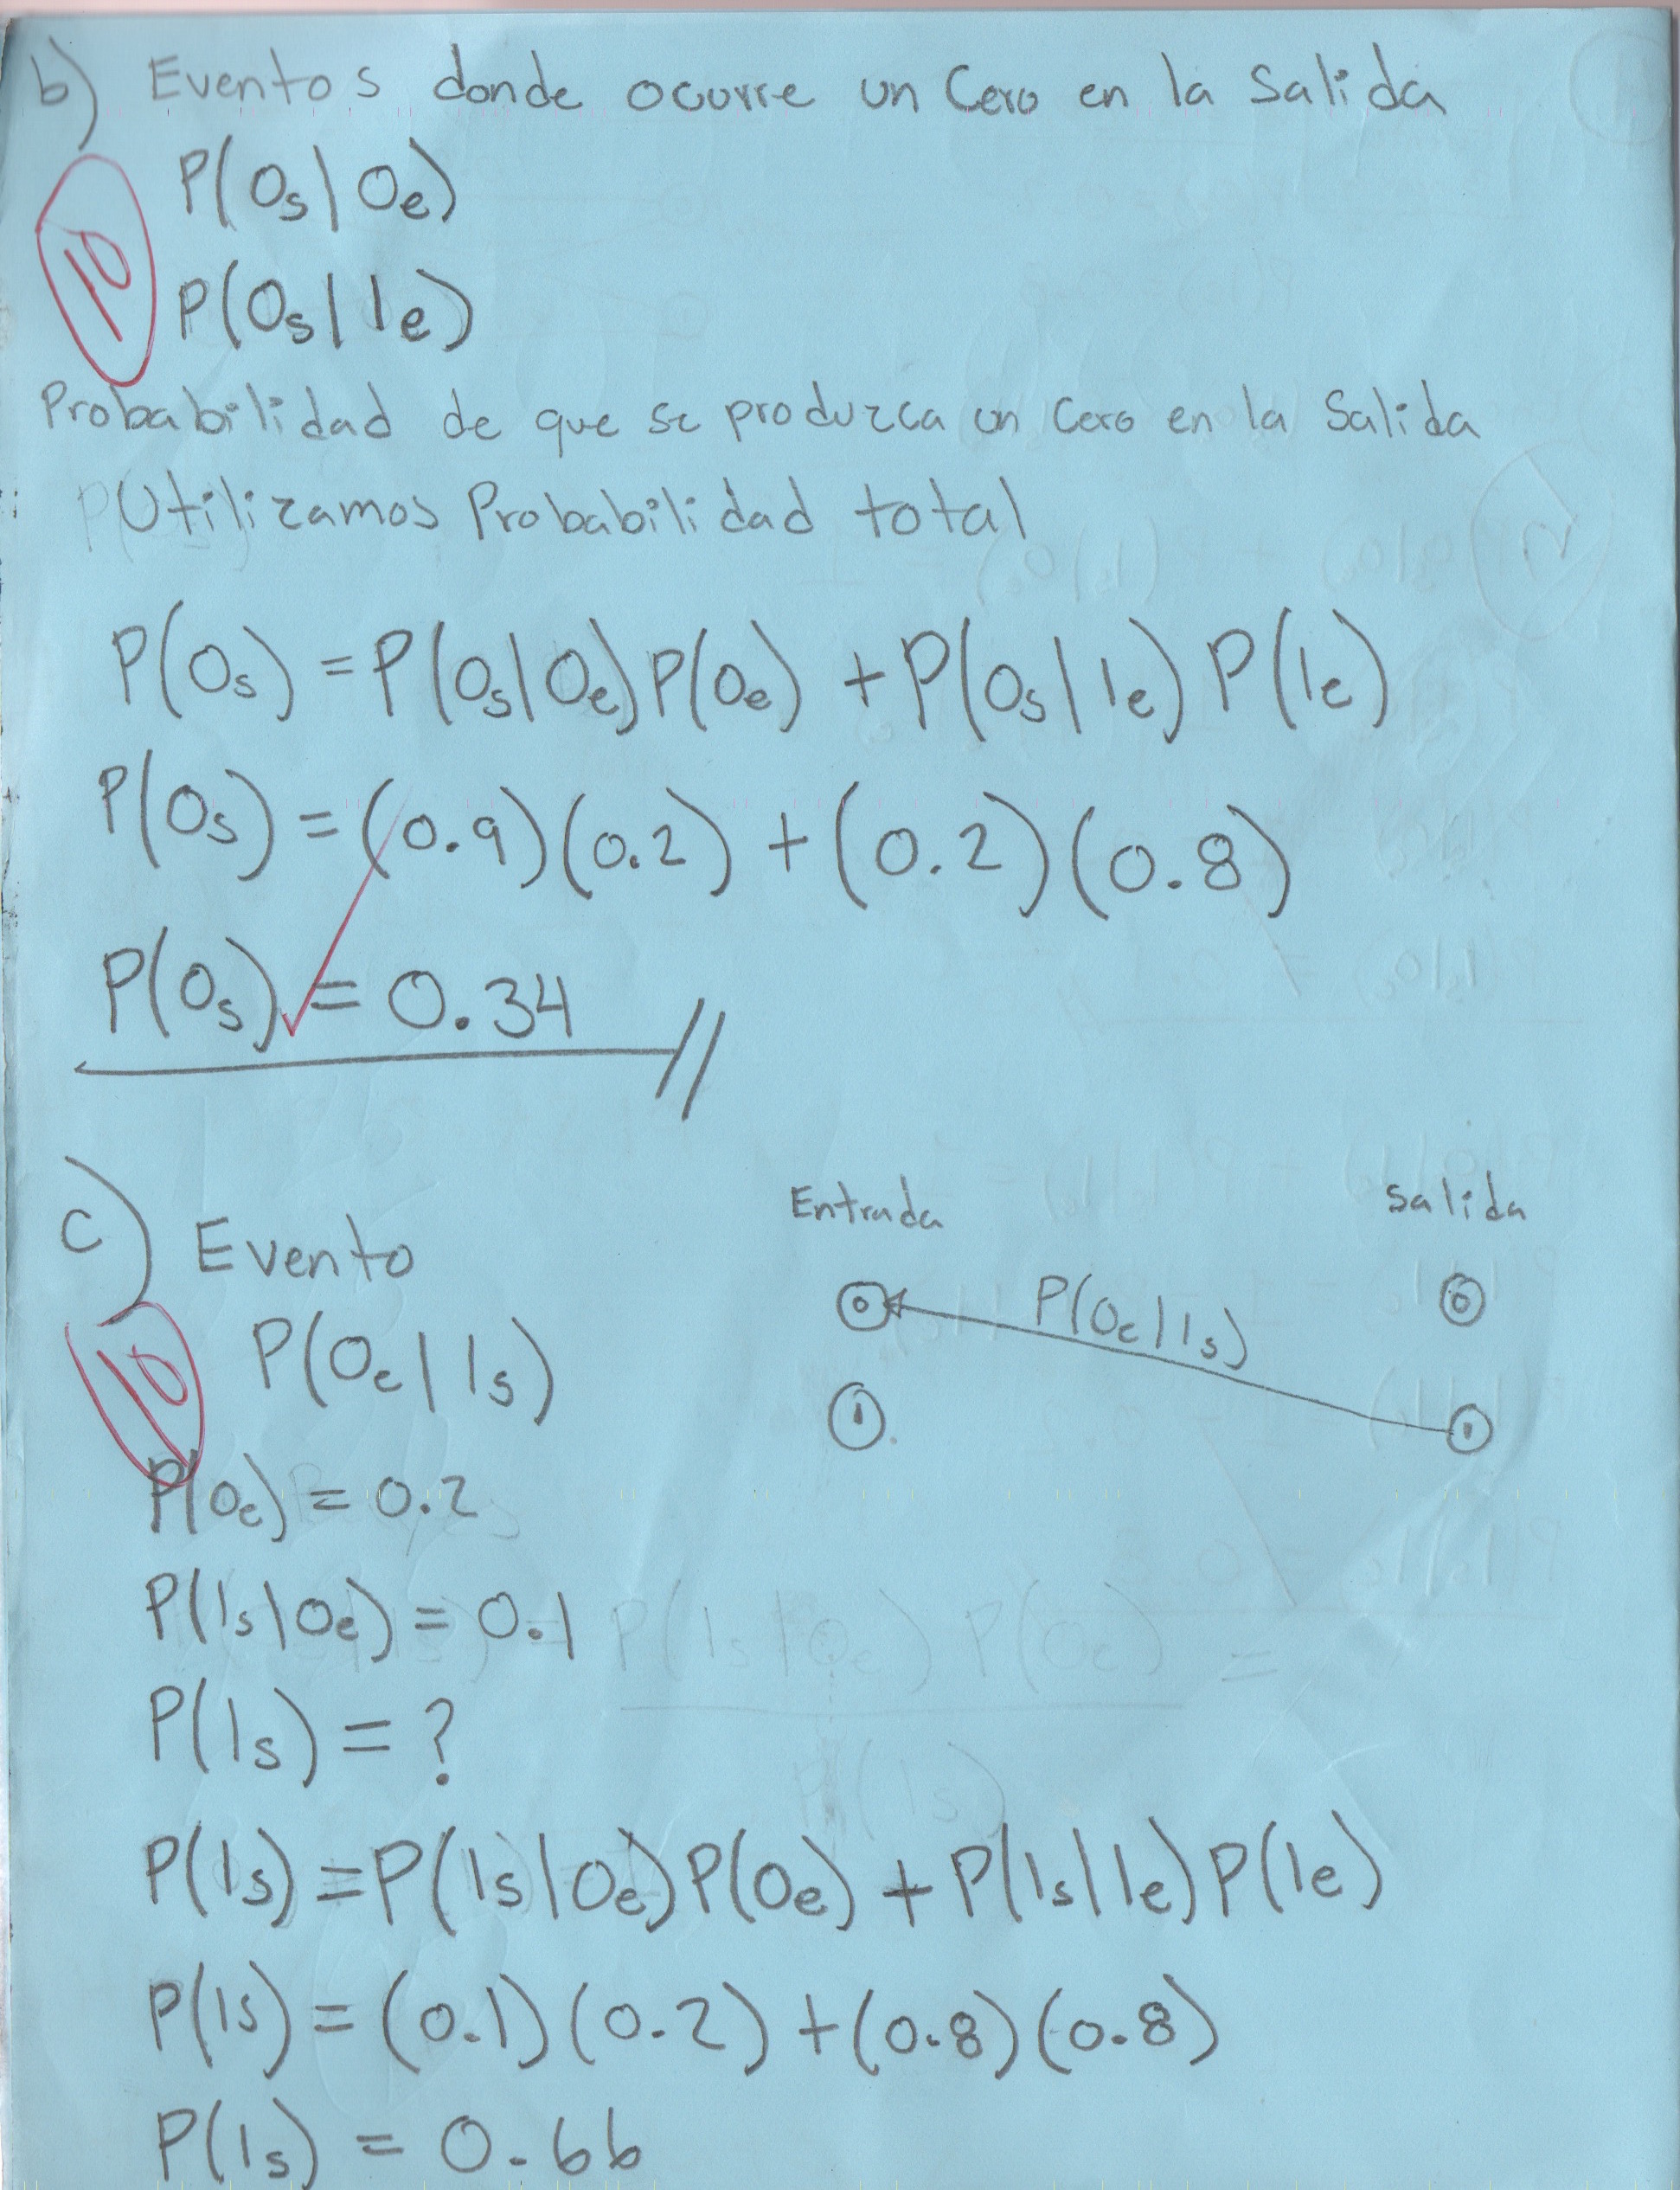 b) Eventos donde ocurre un Cero en la Salida
10
P(0s|0e)
P(0s|1e)
Probabilidad de que se produzca un Cero en la Salida
Utilizamos Probabilidad total
P(0s) = P(0s|0e)P(0e) + P(0s|1e)P(1e)
P(0s) = (0.9)(0.2) + (0.2)(0.8)
P(0s) ✓ = 0.34 //
c) Evento
10
P(0e|1s)
Entrada Salida
0 P(0e|1s) 0
1 1
P(0e) = 0.2
P(1s|0e) = 0.1
P(1s) = ?
P(1s) = P(1s|0e)P(0e) + P(1s|1e)P(1e)
P(1s) = (0.1)(0.2) + (0.8)(0.8)
P(1s) = 0.66